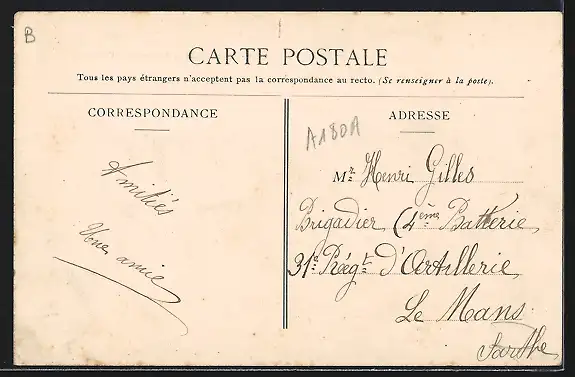 B
CARTE POSTALE
Tous les pays étrangers n'acceptent pas la correspondance au recto. (Se renseigner à la poste).
CORRESPONDANCE
Amitiés
Une amie
ADRESSE
A180A
Mr. Henri Gilles
Brigadier (4ème Batterie
31e Régt. d'Artillerie
Le Mans
Sarthe